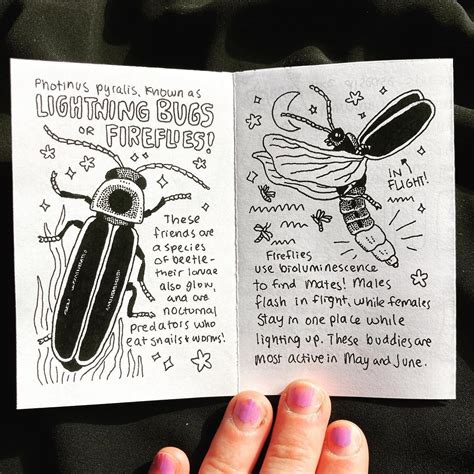 Photinus pyralis, known as
LIGHTNING BUGS
or FIREFLIES!
These
friends are
a species
of beetle-
their larvae
also glow,
and are
nocturnal
predators who
eat snails & worms!
IN
FLIGHT!
Fireflies
use bioluminescence
to find mates! Males
flash in flight, while females
stay in one place while
lighting up. These buddies are
most active in May and June.